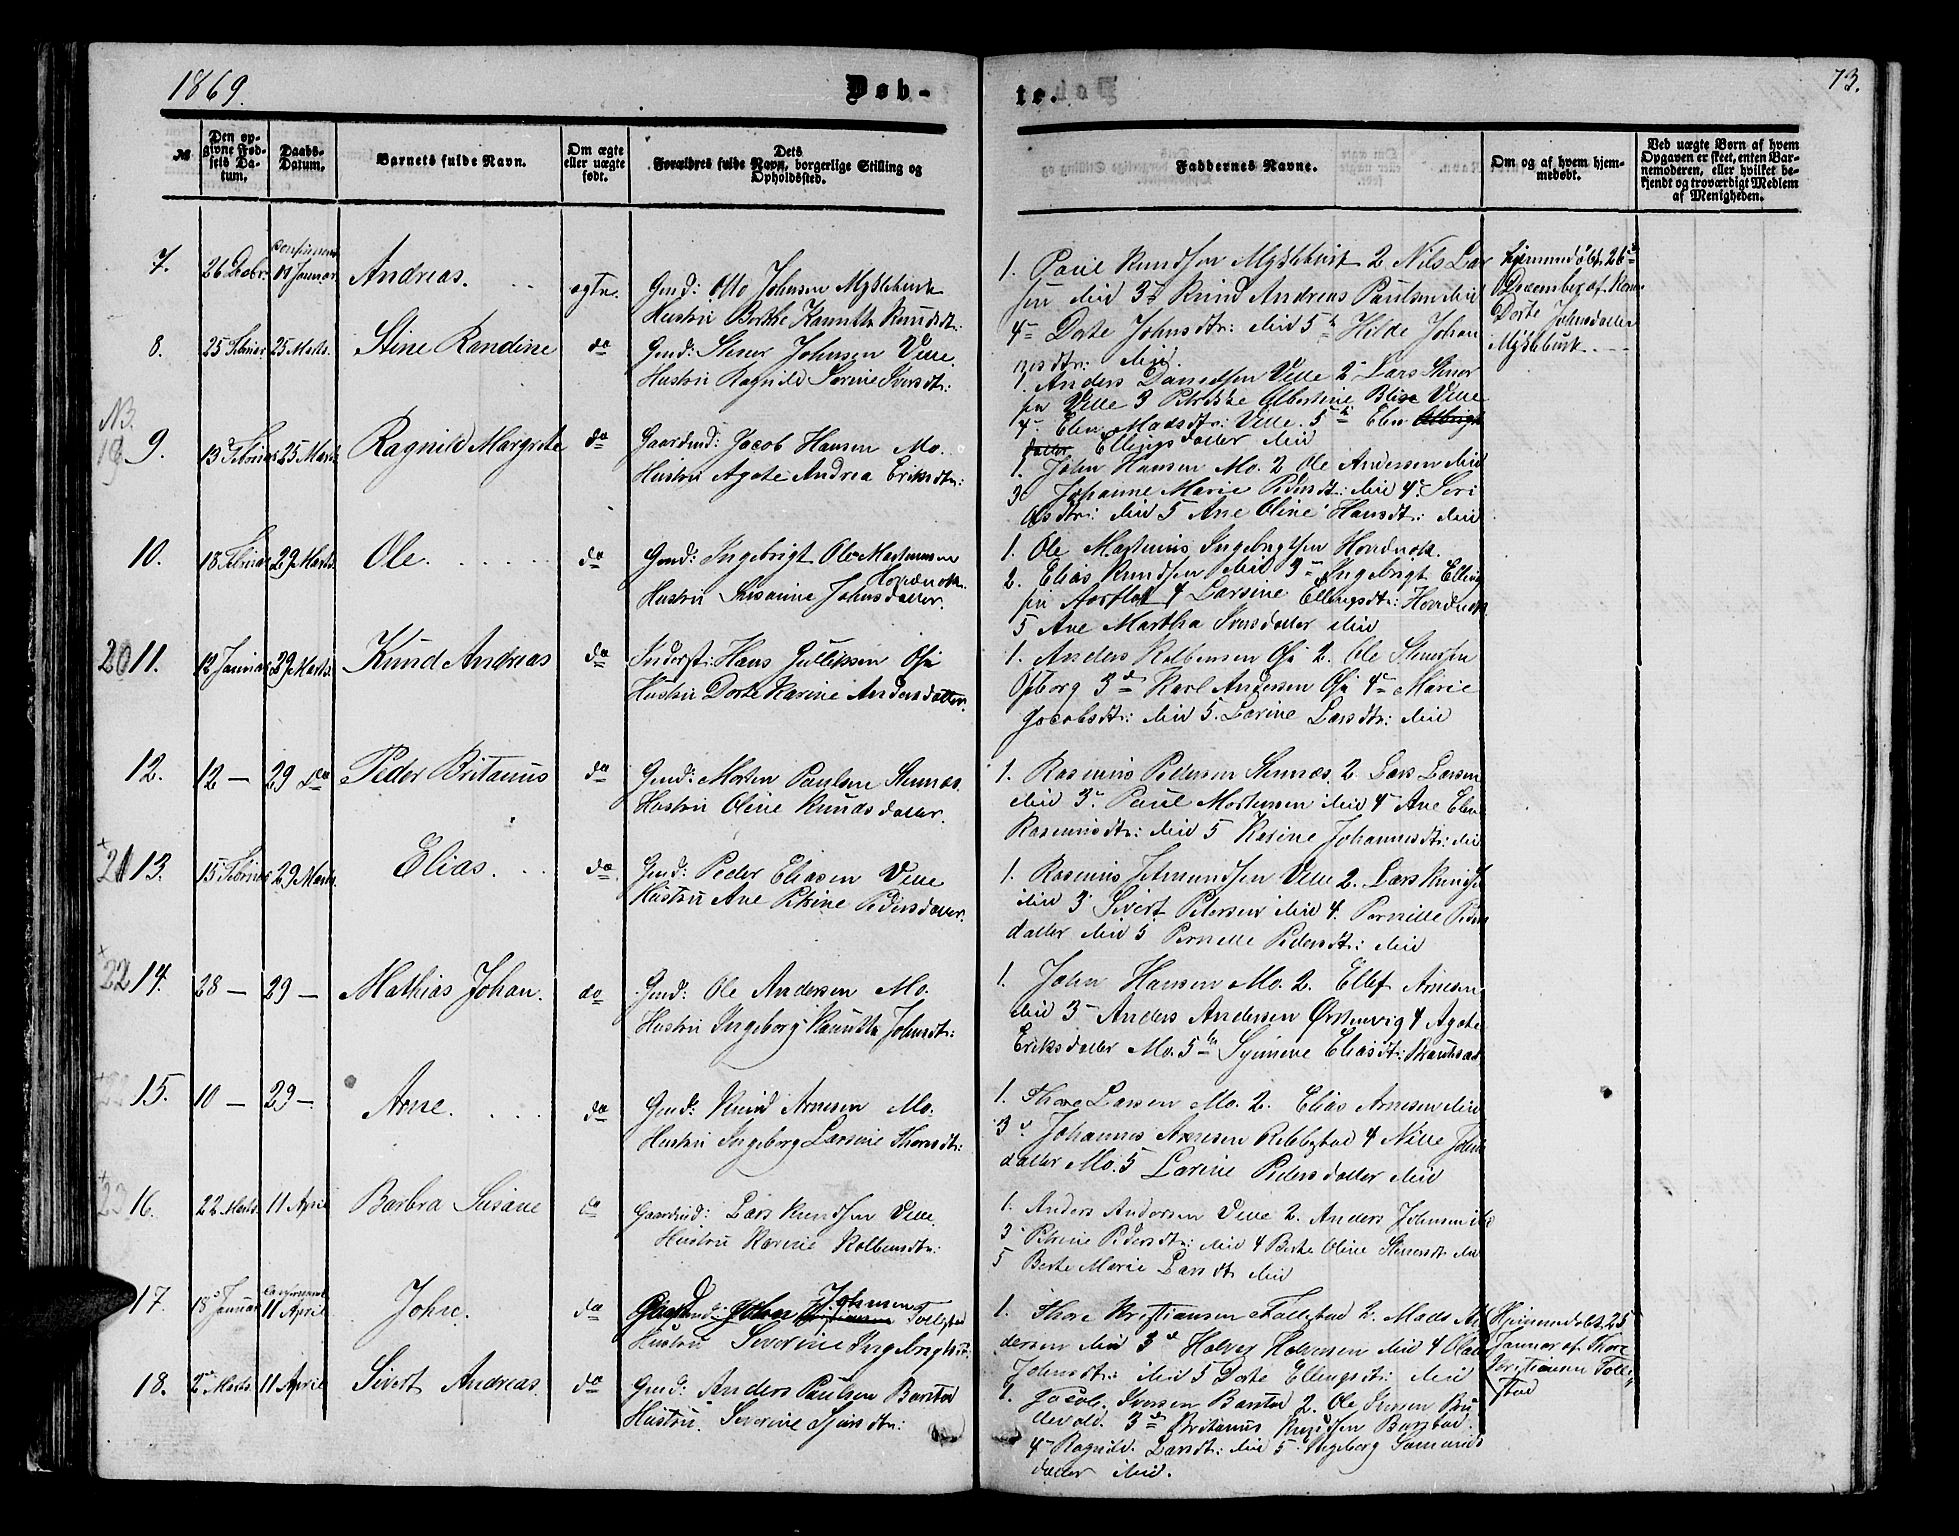 1869.
Døb-
te.
73.
№
Den op-
givne Fød-
sels Da-
tum.
Daabs-
Datum.
Barnets fulde Navn.
Om ægte
eller uægte
født.
Dets
Forældres fulde Navn, borgerlige Stilling og
Opholdssted.
Faddernes Navne.
Om og af hvem hjem-
medøbt.
Ved uægte Børn af hvem
Opgaven er skeet, enten Bar-
nemoderen, eller hvilket be-
kjendt og troværdigt Medlem
af Menigheden.
7. 26 Decbr Januar Andreas. ægte. Gmd: Otto Johnsen Myklebust
Hustru Berthe Knuttha Knudsdtr:
1. Paul Knudsen Myklebust 2 Nils Lar
sen ibid 3 Knud Andreas Paulsen ibid
4 Dorte Johnsdtr: ibid 5 Hilde Johan
nesdtr: ibid.
Hjemmedøbt 26
December af
Dorte Johnsdatter
Myklebust
8. 25 Februar 25 Marts. Stine Randine do Gmd: Stener Johnsen Velle
Hustru Ragnild Serine Iversdtr:
1 Anders Danielsen Velle 2 Lars Stener
sen Velle 3 Petrikke Albertine Blix Velle
4 Elen Madsdtr: Velle. 5 Elen
Ellingsdatter ibid
NB.
19 9. 13 Februar 25 Marts Ragnild Margrete do Gaardmd: Jacob Hansen Mo.
Hustru Agate Andrea Eriksdtr:
1. John Hansen Mo. 2 Ole Andersen ibid
3 Johanne Marie Pedersdtr: ibid 4 Siri
Olsdtr: ibid 5 Ane Oline Hansdtr: ibid
10. 18 Februar 29 Marts. Ole. do Gmd: Ingebrigt Ole Martinusen
Hovdenak.
Hustru Susanne Johnsdatter.
1. Ole Martinus Ingebrigtsen Hovdenak.
2. Elias Knudsen ibid 3 Ingebrigt Elling
sen Aarflot 4 Larsine Ellingsdtr: Hovdenak
5 Ane Martha Iversdatter ibid
20 11. 12 Januar 29 Marts. Knud Andreas do Inderst: Hans Gulliksen
Hustru Dorte Karine Andersdatter.
1. Anders Kolbensen 2. Ole Stenersen
Osborg 3 Karl Andersen 4 Marie
Jacobsdtr: ibid 5. Larine Larsdtr: ibid
12. 12 — 29 do Peder Britanus do Gmd: Morten Paulsen Stennes.
Hustru Oline Knudsdatter.
1. Rasmus Pedersen Stennes. 2. Lars Larsen
ibid 3 Paul Mortensen ibid 4 Ane Elen
Rasmusdtr: ibid 5 Rasine Johannesdtr: ibid
21 13. 15 Februar 29 Marts. Elias. do Gmd: Peder Eliasen Velle
Hustru Ane Petrine Pedersdatter.
1. Rasmus Jetmundsen Velle 2. Lars Knudsen
ibid 3 Sivert Petersen ibid 4. Pernille Peders
datter ibid 5 Pernelle Pedersdtr: ibid
22 14. 28 — 29 — Mathias Johan. do Gmd: Ole Andersen Mo.
Hustru Ingeborg Knuttha Johnsdtr:
1. John Hansen Mo. 2. Ellef Arnesen
ibid 3 Anders Andersen Ørstenvig 4 Agate
Eriksdatter Mo. 5 Symene Eliasdtr:
15. 10 — 29 — Arne. do Gmd: Knud Arnesen Mo.
Hustru Ingeborg Larsine Thoresdtr:
1. Thore Larsen Mo. 2. Elias Arnesen ibid
3 Johannes Arnesen Rebbestad 4 Nille John
datter Mo. 5 Larine Pedersdatter ibid
23 16. 22 Marts. 11 April Barbra Susane do Gaardmd: Lars Knudsen Velle.
Hustru Karine Kolbensdtr:
1. Anders Andersen Velle 2. Anders Johnsen ibd
3 Petrine Pedersdtr: ibid 4 Berte Oline Stenersdtr ibid
5 Berte Marie Larsdtr ibid
17. 18 Januar 11 April John. do Johnsen Follestad
Hustru Severine Ingebrigtsdtr:
1. Thore Kristiansen Follestad 2. Mads An
dersen ibid 3 Halvor Halvorsen ibid 4 Olave
Johnsdtr: ibid 5 Dorte Ellingsdtr: ibid
Hjemmedøbt 25
Januar af Thore
Kristiansen Folle
stad
18. 2 Marts. 11 April Sivert Andreas. do Gmd: Anders Paulsen Barstad
Hustru. Severine Sjursdtr:
1. Jacob Iversen Barstad 2. Ole Jensen
3 Britanus Knudsen Barstad.
4 Ragnild Larsdtr: ibid 5 Ingeborg Samunds
datter ibid.